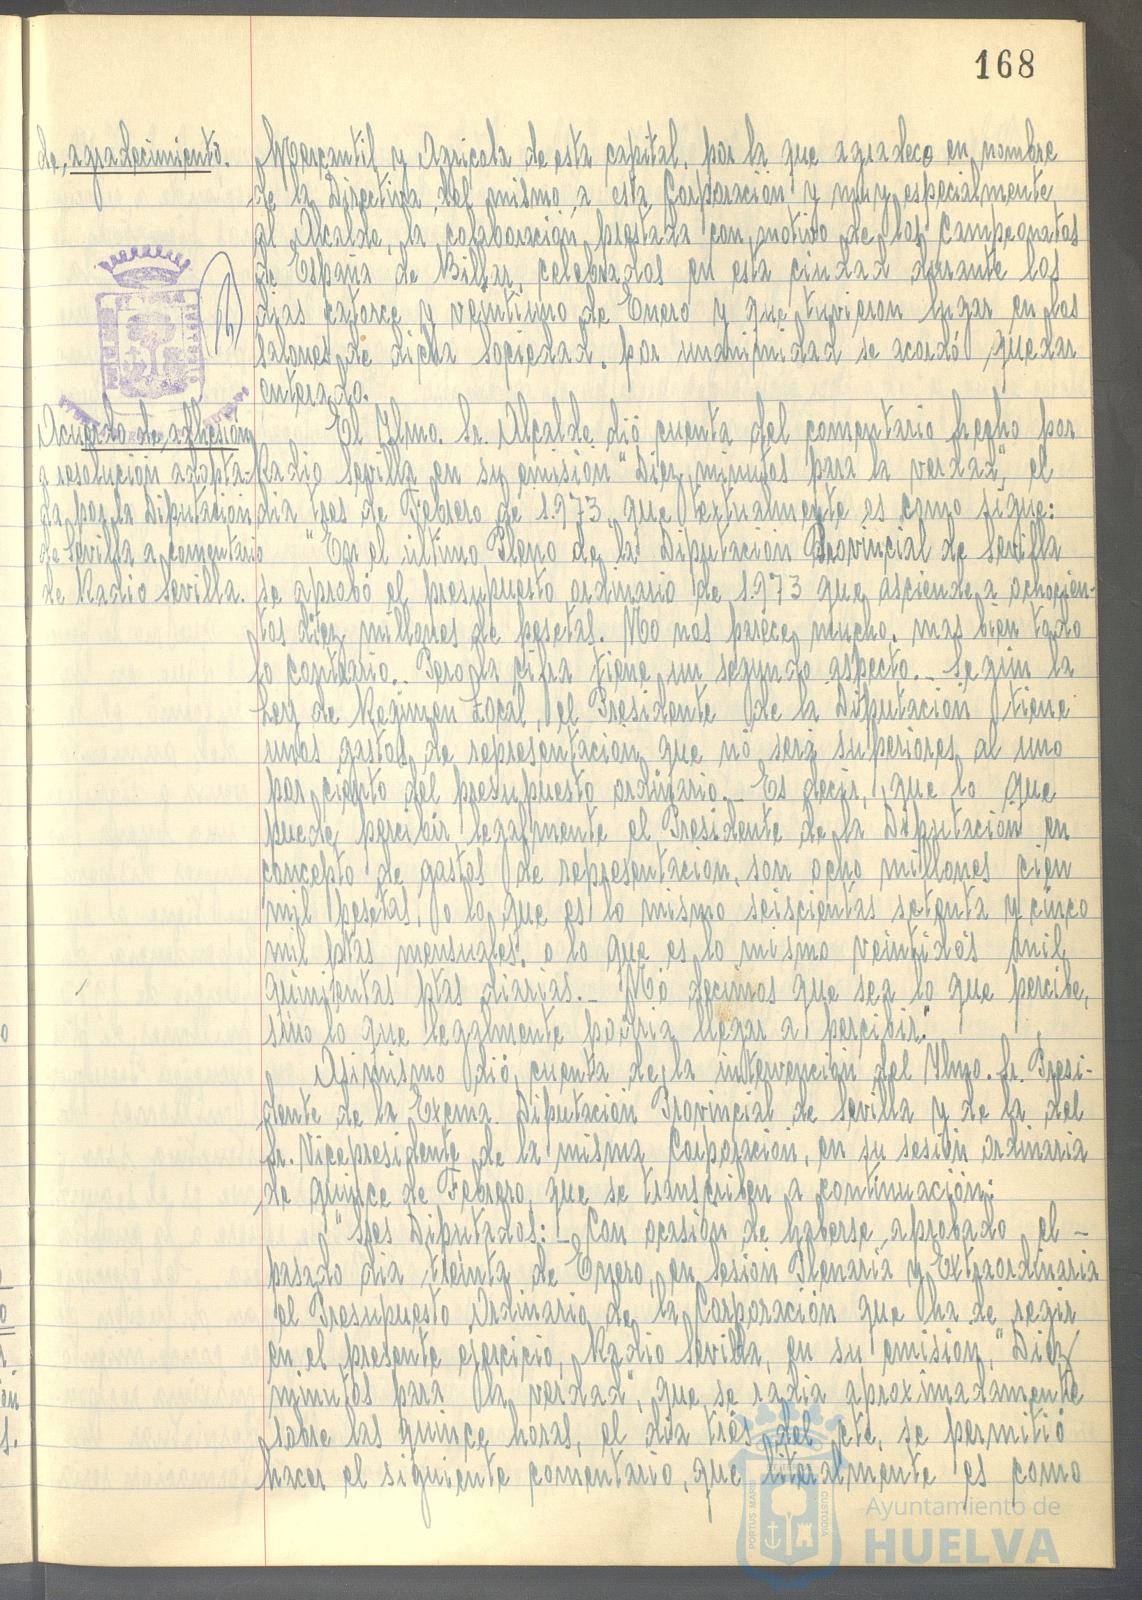 168
de agradecimiento.
Mercantil y Agricola de esta capital, por la que agradece en nombre
de la Directiva del mismo a esta Corporación y muy especialmente
al Alcalde, la colaboración prestada con motivo de los Campeonatos
de España de Billar, celebrados en esta ciudad durante los
dias catorce y veintiuno de Enero y que tuvieron lugar en los
salones de dicha Sociedad. Por unanimidad se acordó quedar
enterado.
Acuerdo de adhesión
a resolución adopta-
da por la Diputación
de Sevilla a comentario
de Radio Sevilla.
El Ilmo. Sr. Alcalde dió cuenta del comentario hecho por
Radio Sevilla en su emisión "Diez minutos para la verdad", el
dia tres de Febrero de 1.973, que textualmente es como sigue:
"En el último Pleno de la Diputación Provincial de Sevilla
se aprobó el presupuesto ordinario de 1.973 que asciende a ochocien-
tos diez millones de pesetas. No nos parece mucho, mas bien todo
lo contrario.. Pero la cifra tiene un segundo aspecto._ Según la
Ley de Regimen Local, el Presidente de la Diputación tiene
unos gastos de representación que no será superiores al uno
por ciento del presupuesto ordinario._ Es decir, que lo que
puede percibir legalmente el Presidente de la Diputación en
concepto de gastos de representación, son ocho millones cien
mil pesetas, o lo que es lo mismo seiscientas setenta y cinco
mil ptas mensuales, o lo que es lo mismo veintidós mil
quinientas ptas diarias._ No decimos que sea lo que percibe,
sino lo que legalmente podria llegar a percibir."
Asimismo dió cuenta de la intervención del Ilmo. Sr. Presi-
dente de la Excma. Diputación Provincial de Sevilla y de la del
Sr. Vicepresidente de la misma Corporación, en su sesión ordinaria
de quince de Febrero, que se transcriben a continuación:
"Sres Diputados:_ Con ocasión de haberse aprobado el -
pasado dia treinta de Enero, en Sesión Plenaria y Extraordinaria
el Presupuesto Ordinario de la Corporación que ha de regir
en el presente ejercicio, Radio Sevilla, en su emisión, "Diez
minutos para la verdad", que se radia aproximadamente
sobre las quince horas, el dia tres del cte, se permitió
hacer el siguiente comentario, que literalmente es como
PORTUS MARIS
CUSTODIA
Ayuntamiento de
HUELVA